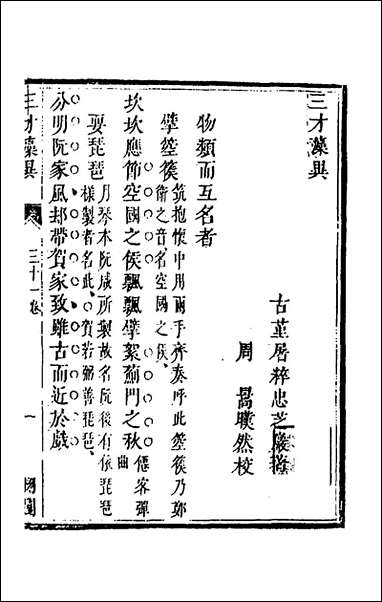 三才藻異
古堇屠粹忠芝巖
周勗暵然校
物類而互名者
擘箜篌
筑抱懷中用兩手齊奏呼此箜篌乃鄭
衛之音名空國之侯
坎坎應節空國之侯飄飄擘絮薊門之秋
僊客彈
曲
耍琵琶
月琴本阮咸所製故名阮後有依琵琶
樣製者名此賀若弼善琵琶
分明阮家風却帶賀家致雖古而近於戲
三才藻異
三十一卷
一